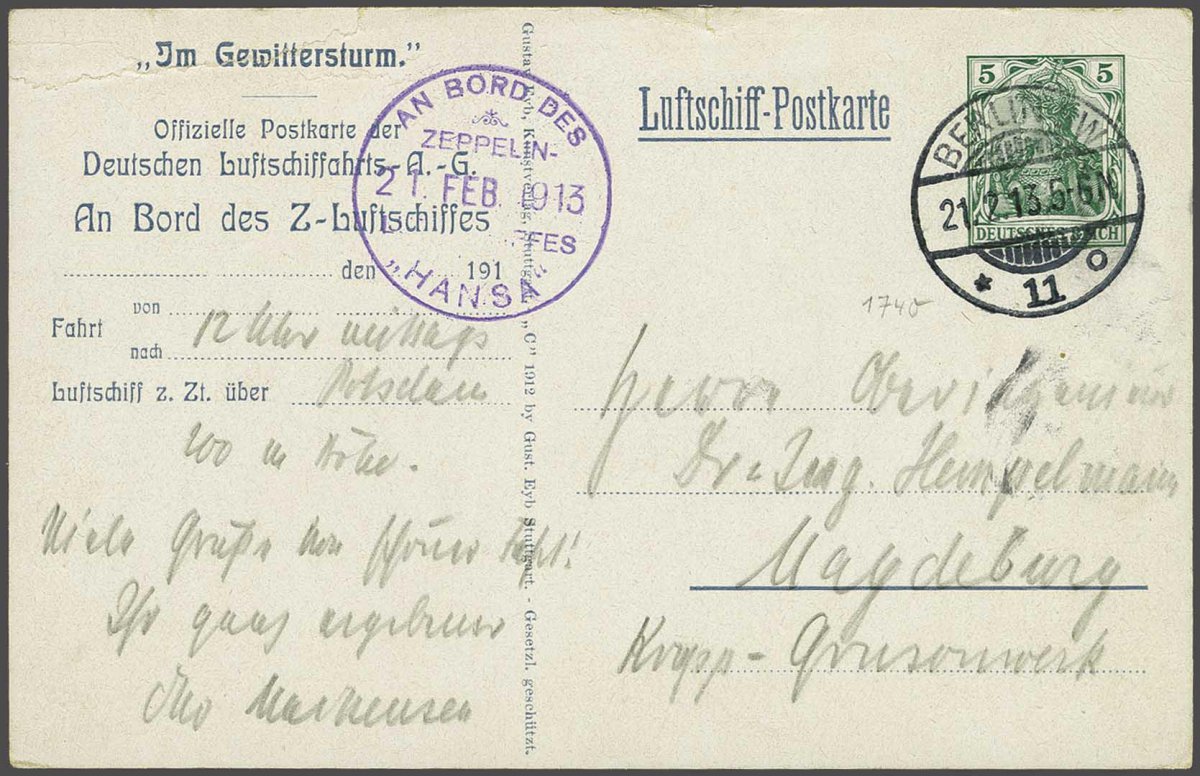 „Im Gewittersturm.”
Offizielle Postkarte der
Deutschen Luftschiffahrts-A.-G.
An Bord des Z-Luftschiffes
den 191
Fahrt von 12 Uhr mittags
nach
Luftschiff z. Zt. über Potsdam
200 m Höhe.
Viele Grüße von schöner Fahrt!
Ihr ganz ergebener
Otto Mackensen
AN BORD DES
ZEPPELIN-
21. FEB. 1913
FFES
„HANSA“
Gustav Eyb, Kunstverlag, Stuttgart. „C" 1912 by Gust. Eyb Stuttgart. - Gesetzl. geschützt.
Luftschiff-Postkarte
5 5
DEUTSCHES REICH
BERLIN W
21 2 13 5-6N
* 11 o
1740
Herrn Oberingenieur
Dr-Ing. Hempelmann
Magdeburg
Krupp-Grusonwerk